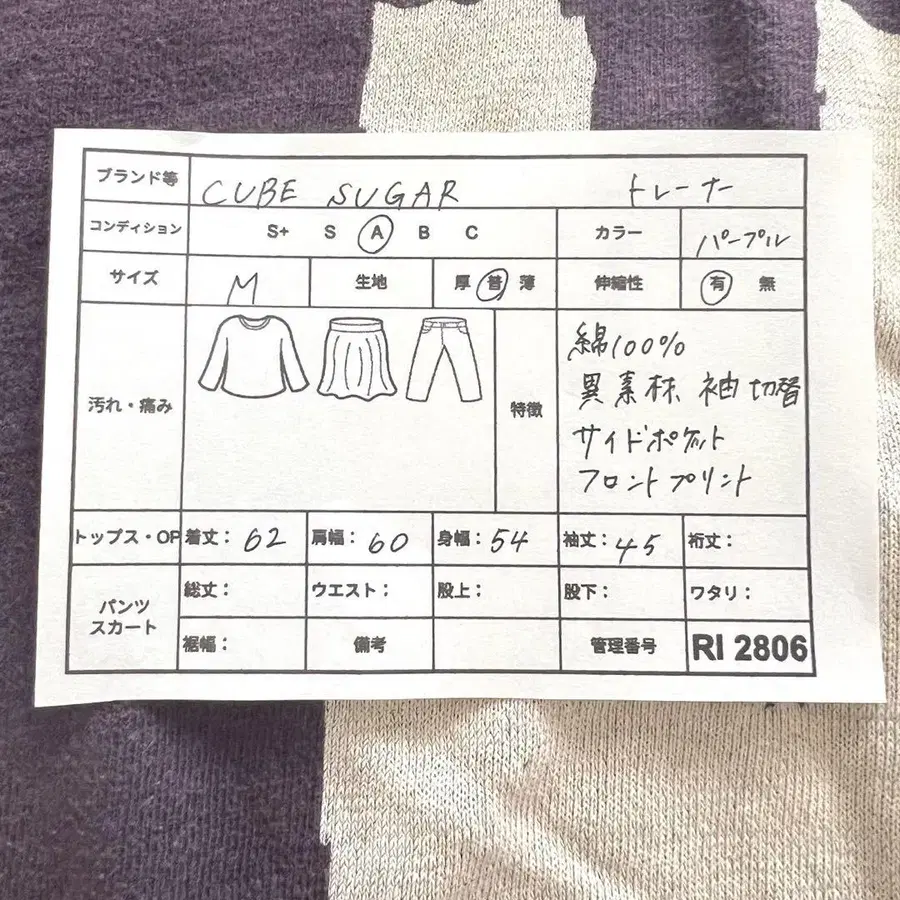 ブランド等 CUBE SUGAR トレーナー
コンディション S+ S A B C カラー パープル
サイズ M 生地 厚 普 薄 伸縮性 有 無
汚れ・痛み 特徴
綿100%
異素材、袖切替
サイドポケット
フロントプリント
トップス・OP 着丈：62 肩幅：60 身幅：54 袖丈：45 裄丈：
パンツ
スカート
総丈： ウエスト： 股上： 股下： ワタリ：
裾幅： 備考 管理番号 RI 2806